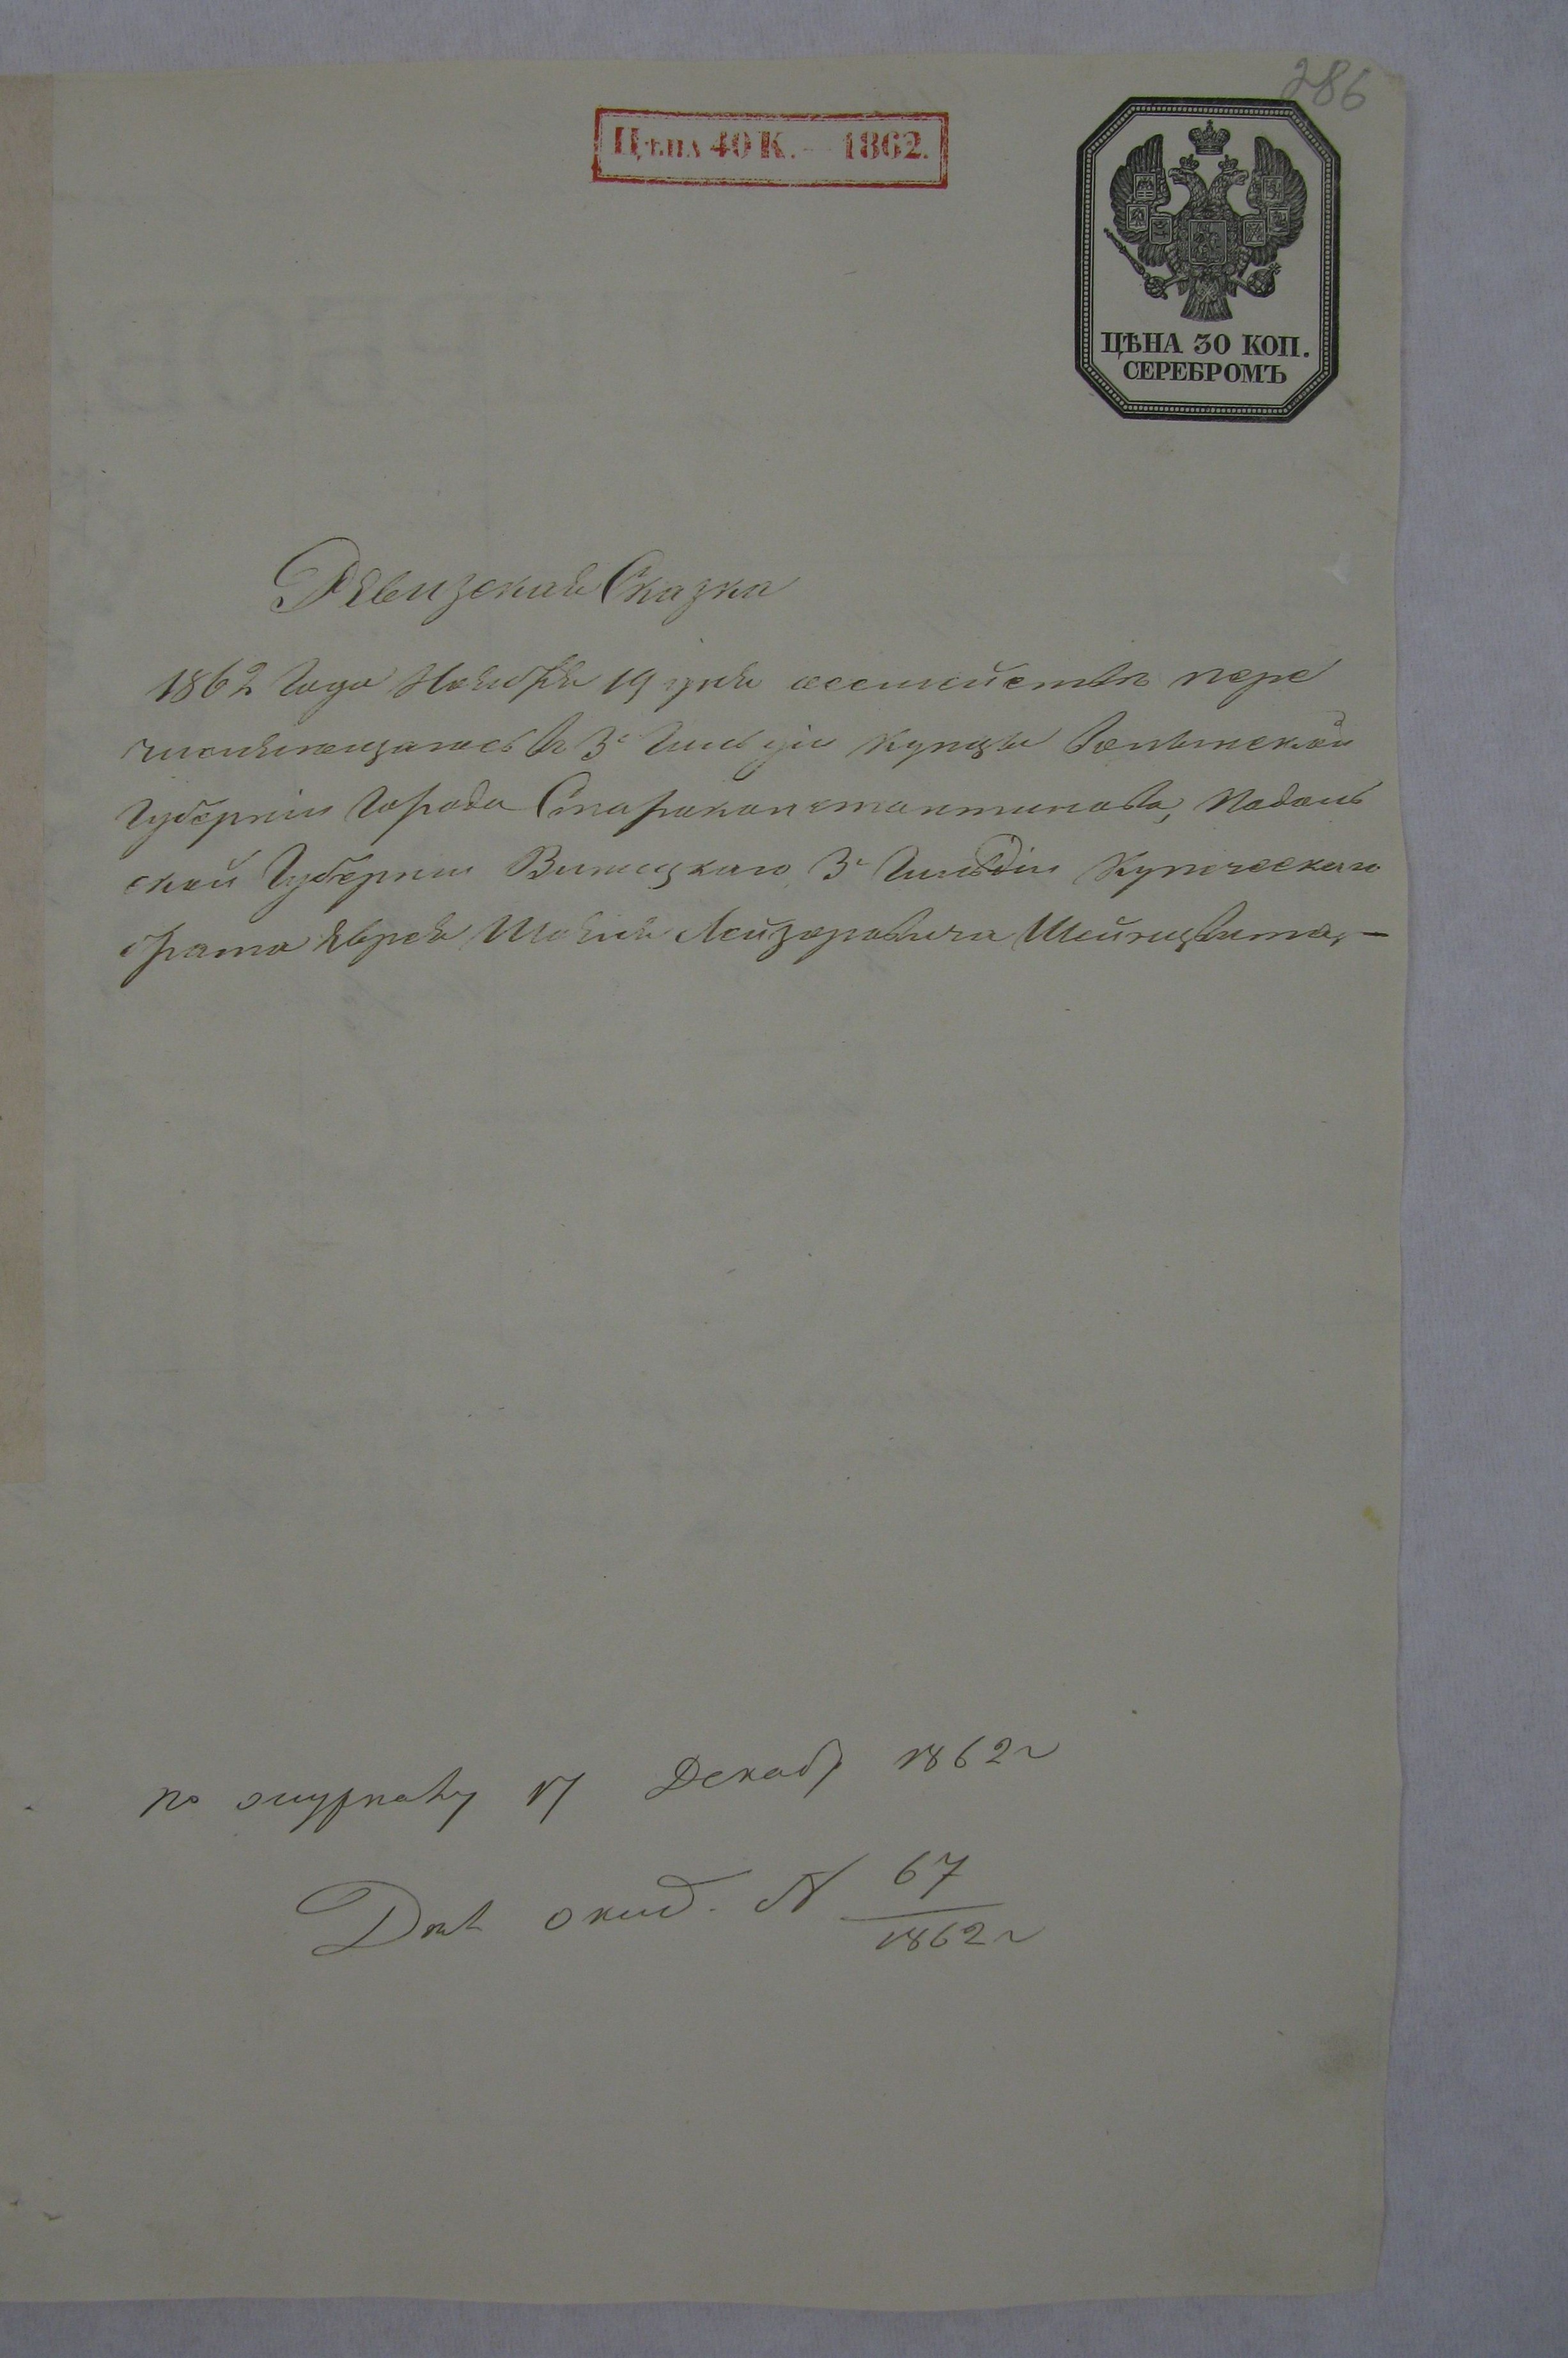 286
Цѣна 40 К. — 1862.
ЦѢНА 30 КОП.
СЕРЕБРОМЪ
Ревизская Сказка
1862 Года Ноября 19 дня о семействѣ пере
числяющагося въ 3й Гильдіи купцы Волынской
Губерніи Города Староконстантинова, Подоль
ской Губерніи Виницкаго 3й Гильдіи Купеческаго
брата Еврея Лейзеровича Шейнцвита, —
по журналу 17 Декабр 1862 г
Дѣл № 67
1862 г